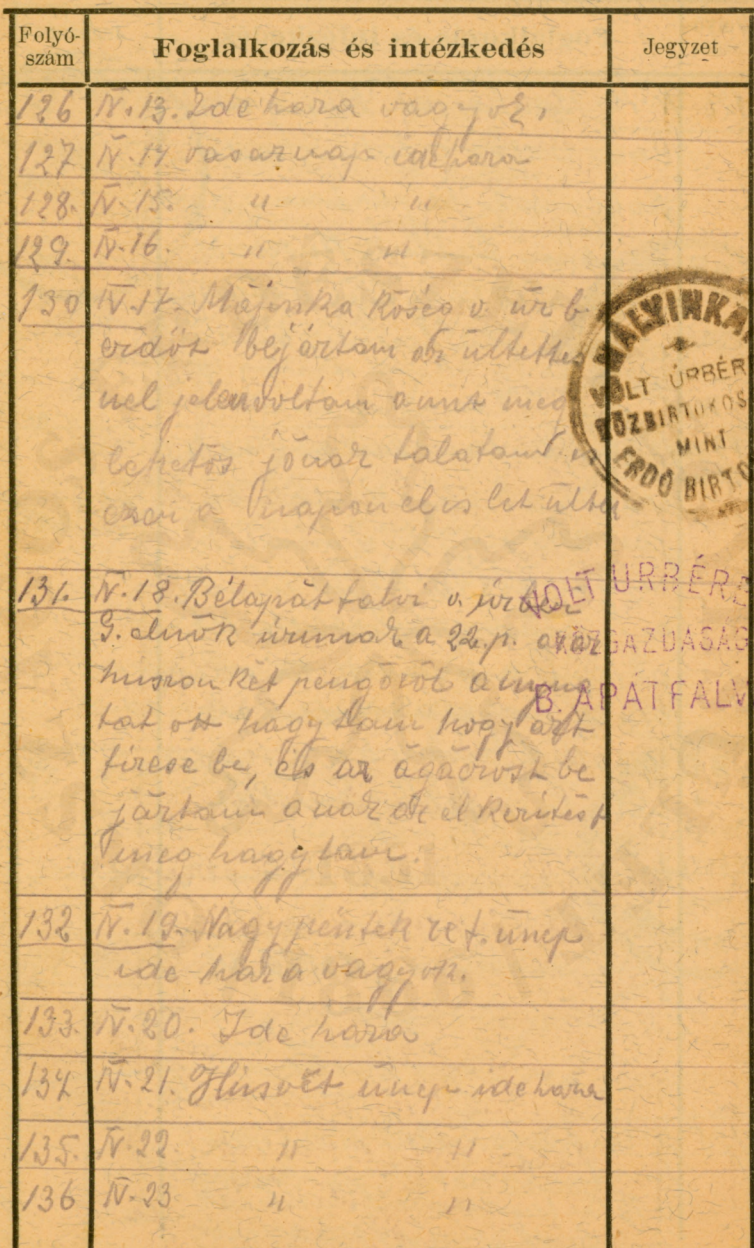 Folyó-
szám Foglalkozás és intézkedés Jegyzet
126 IV.13. Ide haza vagyok.
127 IV.14 vasarnap idehaza
128. IV.15. " "
129. IV.16. " "
130 IV.17. Májinka község v. úrb.
erdőt bejártam az ültettes
nél jelenvoltam amit meg
lehetős jónak talatam és
ezen a napon el is let ülte
MÁLYINKA
VOLT ÚRBÉR
KÖZBIRTOKOS
MINT
ERDŐ BIRTO
131. IV.18. Bélapátfalvi v.
G. elnök úrnnak a 22.p. azaz
huszon két pengőről a nyug
tat ott hagytam hogy azt
fizese be, és az ágácost be
jártam annak az el kerítést
meg hagytam.
VOLT URBÉRE
KÖZGAZDASÁG
B. APÁTFALV
132 IV.19. Nagy péntek ref. ünep
ide haza vagyok.
133. IV.20. Ide haza
134 IV.21. Húsvét ünep idehaza
135. IV.22 " "
136 IV.23 " "